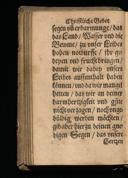 Christliche Gebet
segen uñ erbarmunge / das
das Land / Wasser und die
Beume / zu unser Leibes
haben noturfft / fry ge-
deyen und frucht bringen /
damit wir dabey unsers
Leibes auffenthalt haben
können / und da wir mangel
hetten / das wir an deiner
barmhertzigkeit und güte
nicht verzagen / noch unge-
düldig werden möchten /
gib aber hierzu deinen gne-
digen Segen / das unsere
Hertzen